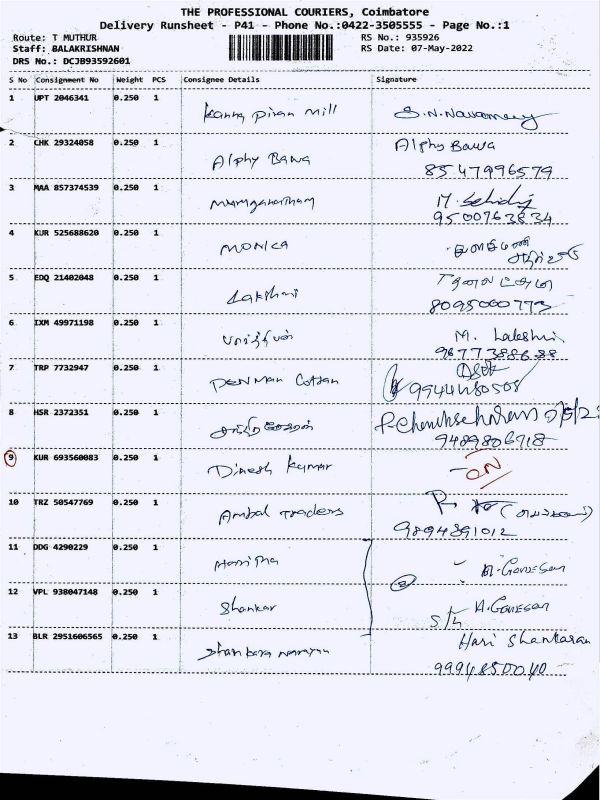 THE PROFESSIONAL COURIERS, Coimbatore
Delivery Runsheet - P41 - Phone No.:0422-3505555 - Page No.:1
Route: T MUTHUR
RS No.: 935926
Staff: BALAKRISHNAN
RS Date: 07-May-2022
DRS No.: DCJB93592601
S No Consignment No Weight PCS Consignee Details Signature
1 UPT 2046341 0.250 1
Kanna Piran Mill
2 CHK 29324058 0.250 1 Alphy Bawa
Alphy Bawa 8547996579
3 MAA 857374539 0.250 1
9500763834
4 KUR 525688620 0.250 1
MONICA
5 EDQ 21402048 0.250 1
Lakshmi 8095000773
6 IXM 49971198 0.250 1
M. Lakshmi
7 TRP 7732947 0.250 1
PENMAN Cotton
8 HSR 2372351 0.250 1
9489806718
9 KUR 693560083 0.250 1
Dinesh Kumar
10 TRZ 50547769 0.250 1
Ambal Traders
9894891012
11 DDG 4290229 0.250 1
Haritha
12 VPL 938047148 0.250 1
Shankar A. Ganesan
13 BLR 2951606565 0.250 1 Hari Shankaran
9994850040